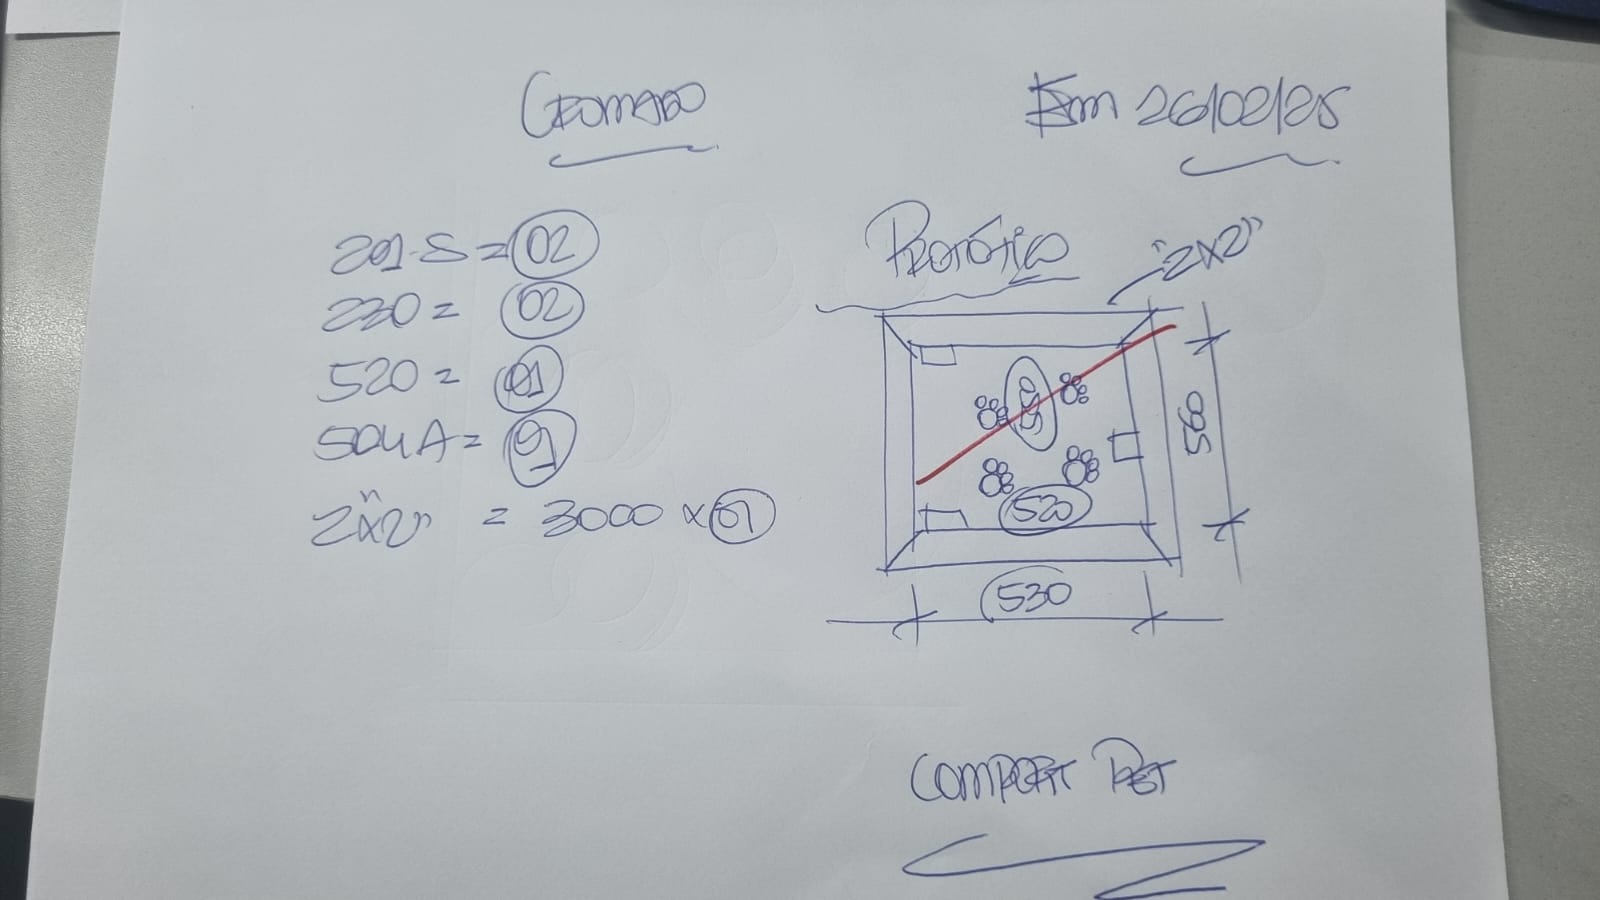 CROMADO
Em 26/02/25
201-S = 02
230 = 02
520 = 01
504A = 01
2"x2" = 3000 x 01
PROTÓTIPO
"2x2"
560
520
530
COMPORT PET